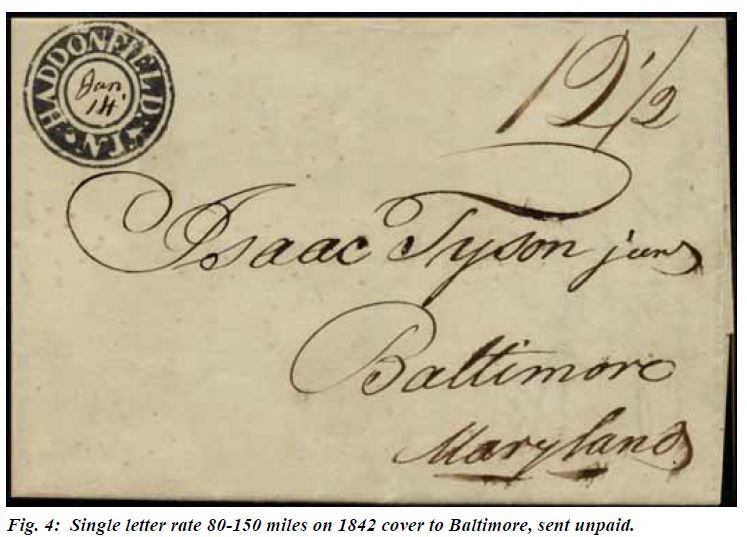 HADDONFIELD N.J.
Jan
14
12 1/2
Isaac Tyson junr
Baltimore
Maryland
Fig. 4: Single letter rate 80-150 miles on 1842 cover to Baltimore, sent unpaid.